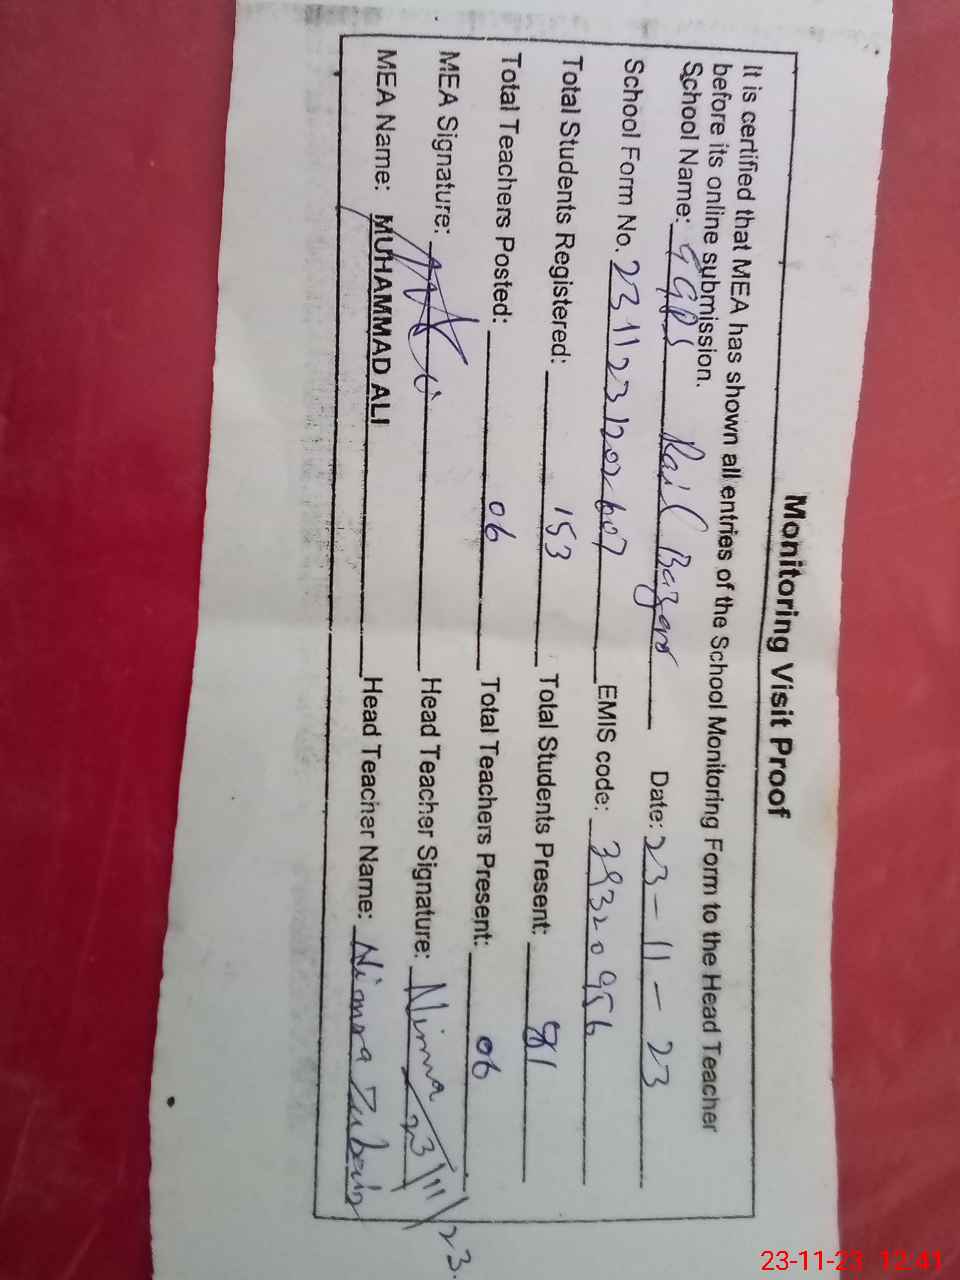 Monitoring Visit Proof
It is certified that MEA has shown all entries of the School Monitoring Form to the Head Teacher
before its online submission.
School Name: GGPS Rail Bazar Date: 23-11-23
School Form No. 231123120 607 EMIS code: 39320956
Total Students Registered: 153 Total Students Present: 81
Total Teachers Posted: 06 Total Teachers Present: 06
MEA Signature: Head Teacher Signature: Nimra 23/11/23.
MEA Name: MUHAMMAD ALI Head Teacher Name: Nimra Zubair
23-11-23 12:41